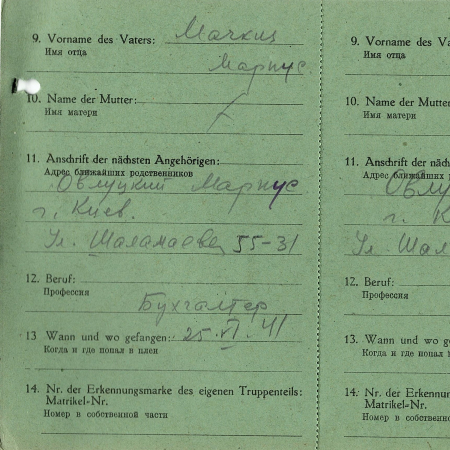 9. Vorname des Vaters:
Имя отца
Маркус
10. Name der Mutter:
Имя матери
11. Anschrift der nächsten Angehörigen:
Адрес ближайших родственников
Овлуцкий Маркус
г. Киев.
Ул. 55-31
12. Beruf:
Профессия
Бухгалтер
13 Wann und wo gefangen: 25.VI.41
Когда и где попал в плен
14. Nr. der Erkennungsmarke des eigenen Truppenteils:
Matrikel-Nr.
Номер в собственной части
9. Vorname des Va
Имя отца
10. Name der Mutter
Имя матери
11. Anschrift der näch
Адрес ближайших р
Овлу
г. К
Ул. Шал
12. Beruf:
Профессия
13. Wann und wo g
Когда и где попал в
14. Nr. der Erkennun
Matrikel-Nr.
Номер в собственно